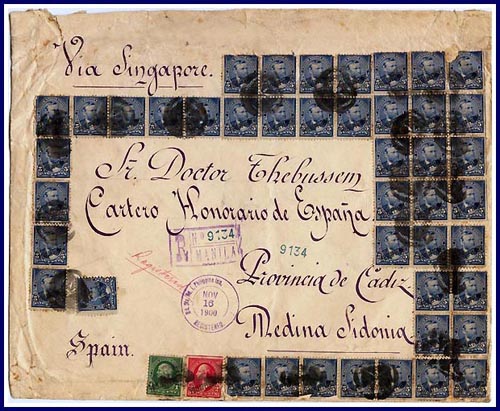 Via Singapore.
Sr. Doctor Thebussem
Cartero Honorario de España.
R No 9134
MANILA
9134
Registered
Provincia de Cádiz.
NOV
16
1900
REGISTERED.
Medina Sidonia
Spain.